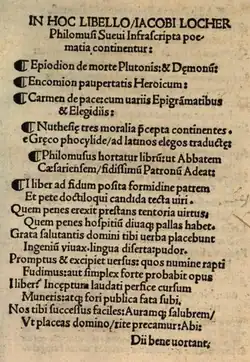 IN HOC LIBELLO/IACOBI LOCHER
Philomusi Sueui Infrascripta poe-
matia continentur:
¶ Epiodion de morte Plutonis: & Dęmonū:
¶ Encomion paupertatis Heroicum:
¶ Carmen de pace: cum uariis Epigrāmatibus
& Elegidiis:
¶ Nuthesię tres moralia p̄cepta continentes.
e Gręco phocylide/ad latinos elegos traductę:
¶ Philomusus hortatur librū: ut Abbatem
Cæsariensem/fidissimū Patronū Adeat:
¶ I liber ad fidum posita formidine patrem
Et pete doctiloqui candida tecta uiri.
Quem penes erexit prestans tentoria uirtus:
Quem penes hospitiū diua pallas habet.
Grata salutantis domini tibi uerba placebunt
Ingeniū viuax-lingua diserta: pudor.
Promptus & excipiet versus: quos numine rapti
Fudimus: aut simplex forte probabit opus
I liber: Inceptum laudati perfice cursum
Muneris: atq; fori publica fata subi.
Nos tibi successus faciles: Auramq; salubrem/
Vt placeas domino/rite precamur: Abi:
Dii bene uortant.